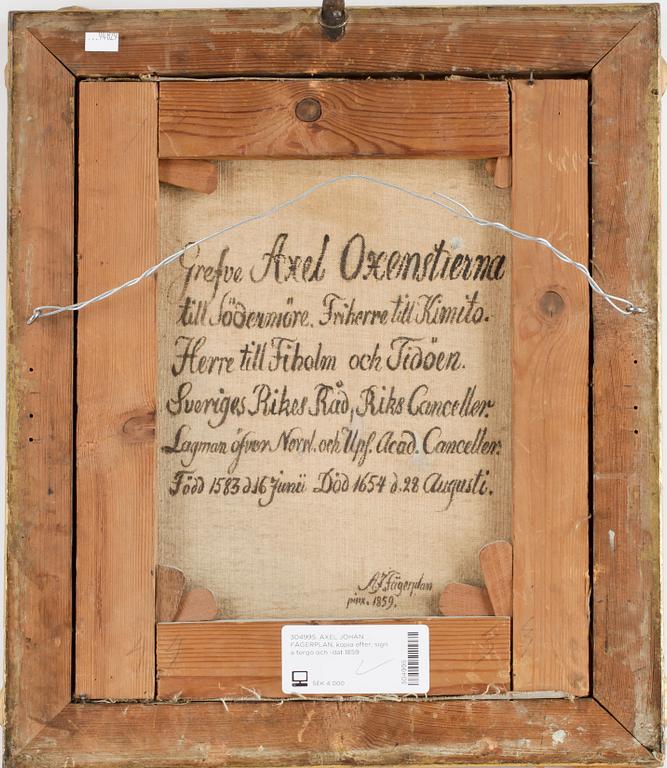 ...94829
Grefve Axel Oxenstierna
till Södermöre. Friherre till Kimito.
Herre till Fiholm och Tidöen.
Sveriges Rikes Råd, Riks Canceller.
Lagman öfver Norrl. och Ups. Acad. Canceller.
Född 1583 d 16 Junii Död 1654 d. 28 Augusti.
A.J. Fägerplan
pinx. 1859.
304995. AXEL JOHAN
FÄGERPLAN, kopia efter, sign
a tergo och -dat 1859
SEK 4 000
304995